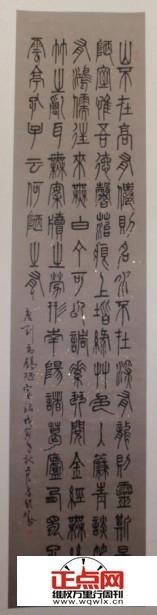 山不在高有僊則名水不在深有龍則靈斯是
陋室惟吾德馨苔痕上堦綠艸色入簾青談笑
有鴻儒往來無白丁可以調素琴閱金經無
竹之亂耳無案牘之勞形南陽諸葛廬西蜀子
雲亭孔子云何陋之有
唐劉禹錫陋室銘戊寅年秋
正点网
维权万里行